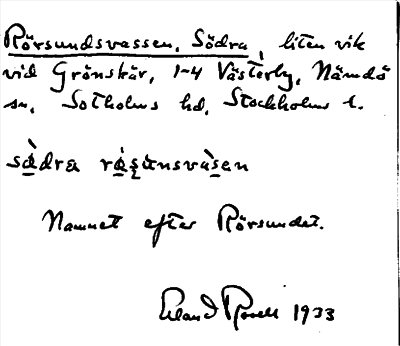 Rörsundsvassen, Södra, liten vik
vid Grönskär, 1-4 Västerby, Nämdö
sn, Sotholms hd, Stockholms l.
sø̀dra rǿʂɯnsvàsen
Namnet efter Rörsundet.
Erland Rosell 1933